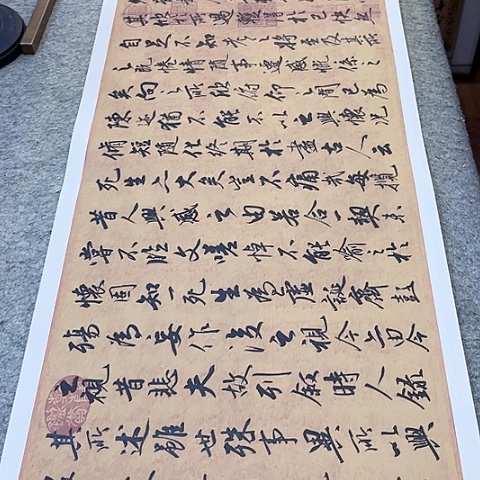 其欣於所遇暫得於己快然
自足不知老之將至及其所
之既惓情隨事遷感慨係之
矣向之所欣俛仰之間已為
陳迹猶不能不以之興懷況
脩短隨化終期於盡古人云
死生亦大矣豈不痛哉每攬
昔人興感之由若合一契未
嘗不臨文嗟悼不能喻之於
懷固知一死生為虛誕齊彭
殤為妄作後之視今亦由今
之視昔悲夫故列叙時人錄
其所述雖世殊事異所以興